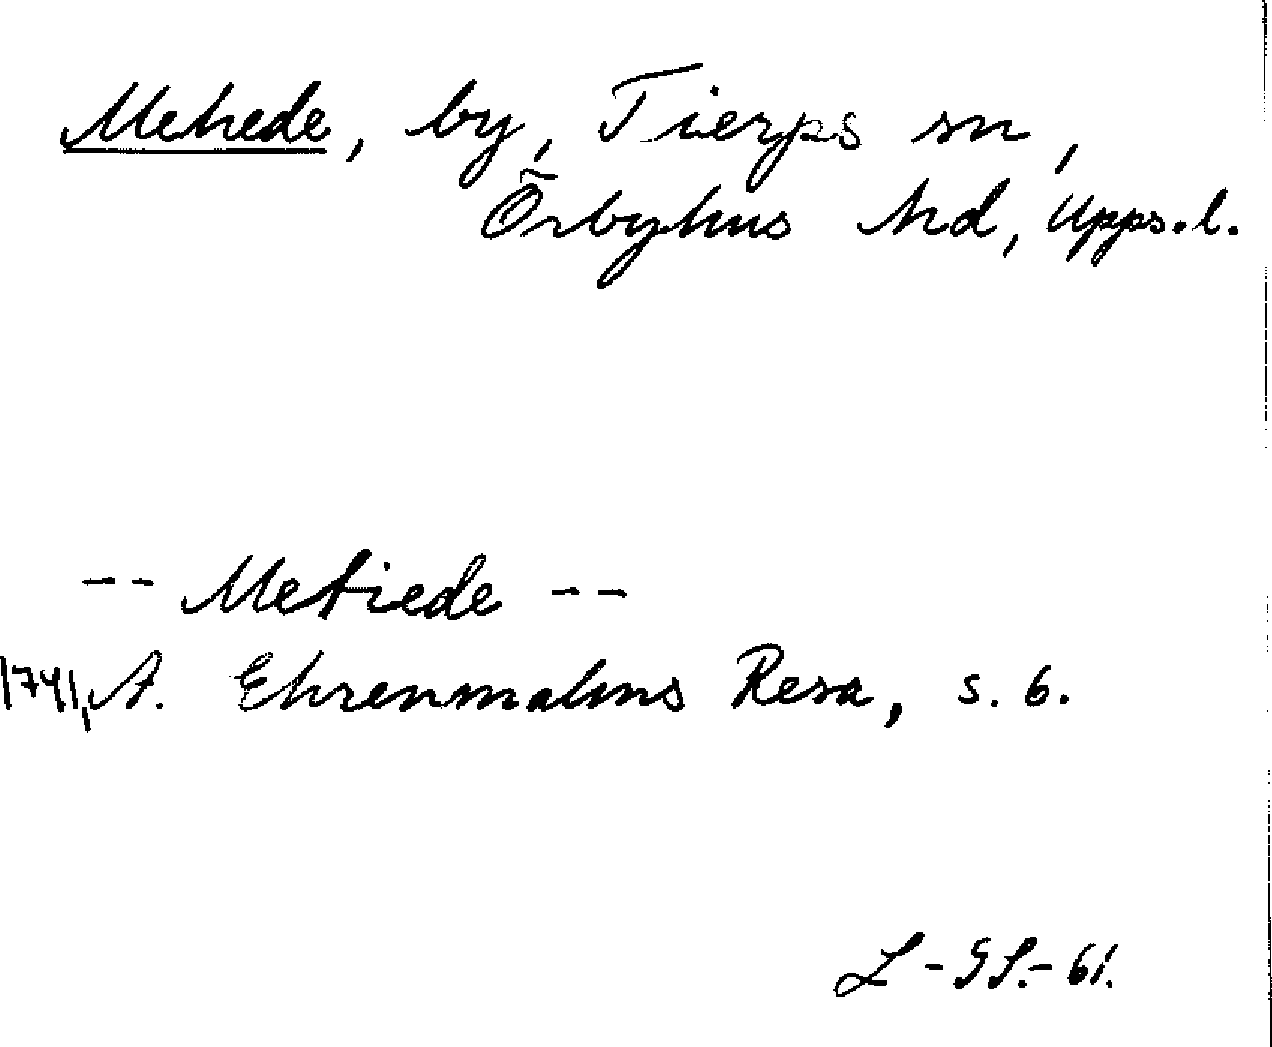 Mehede, by, Tierps sn,
Örbyhus hd, Upps.l.
-- Metiede --
1741, A. Ehrenmalms Resa, s. 6.
L-GS.-61.